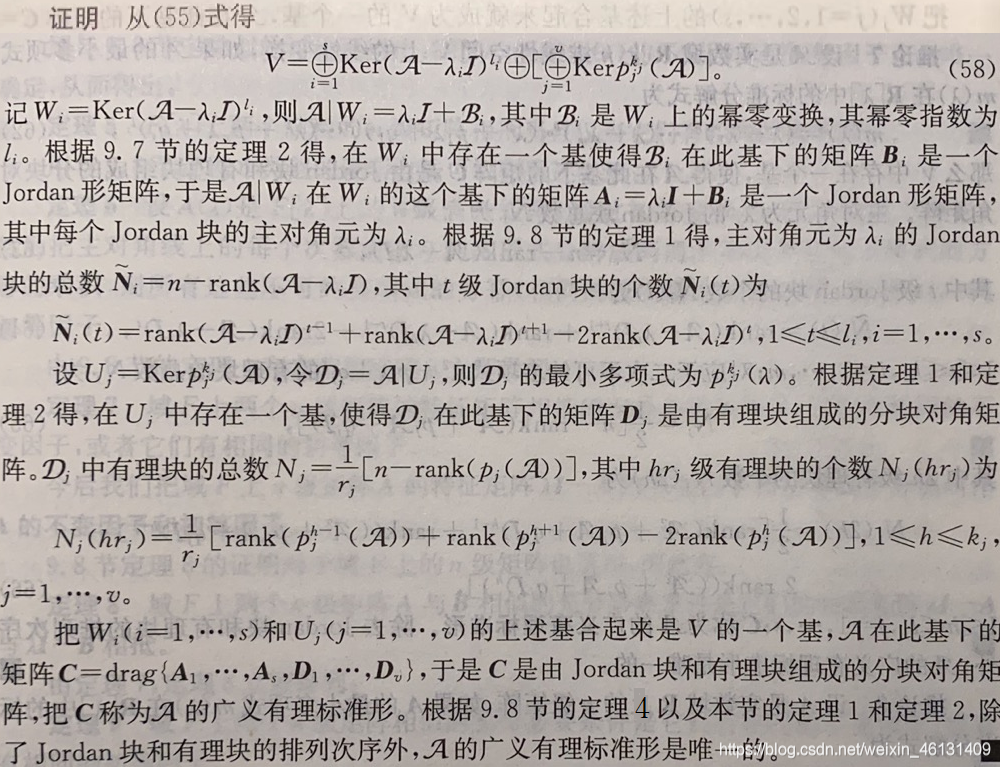 证明 从(55)式得
V=⊕ᵢ₌₁ˢKer(𝒜−λᵢI)^{lᵢ}⊕[⊕ⱼ₌₁ᵛKer pⱼ^{kⱼ}(𝒜)]。 (58)
记 Wᵢ=Ker(𝒜−λᵢI)^{lᵢ},则𝒜|Wᵢ=λᵢI+ℬᵢ,其中ℬᵢ 是 Wᵢ 上的幂零变换,其幂零指数为
lᵢ。根据 9.7 节的定理 2 得,在 Wᵢ 中存在一个基使得ℬᵢ 在此基下的矩阵 Bᵢ 是一个
Jordan 形矩阵,于是𝒜|Wᵢ 在 Wᵢ 的这个基下的矩阵 Aᵢ=λᵢI+Bᵢ 是一个 Jordan 形矩阵,
其中每个 Jordan 块的主对角元为 λᵢ。根据 9.8 节的定理 1 得,主对角元为 λᵢ 的 Jordan
块的总数 Ñᵢ=n−rank(𝒜−λᵢI),其中 t 级 Jordan 块的个数 Ñᵢ(t)为
Ñᵢ(t)=rank(𝒜−λᵢI)^{t−1}+rank(𝒜−λᵢI)^{t+1}−2rank(𝒜−λᵢI)^{t},1≤t≤lᵢ,i=1,⋯,s。
设 Uⱼ=Ker pⱼ^{kⱼ}(𝒜),令𝒟ⱼ=𝒜|Uⱼ,则𝒟ⱼ 的最小多项式为 pⱼ^{kⱼ}(λ)。根据定理 1 和定
理 2 得,在 Uⱼ 中存在一个基,使得𝒟ⱼ 在此基下的矩阵 Dⱼ 是由有理块组成的分块对角矩
阵。𝒟ⱼ 中有理块的总数 Nⱼ=1/rⱼ[n−rank(pⱼ(𝒜))],其中 hrⱼ 级有理块的个数 Nⱼ(hrⱼ)为
Nⱼ(hrⱼ)=1/rⱼ[rank(pⱼ^{h−1}(𝒜))+rank(pⱼ^{h+1}(𝒜))−2rank(pⱼ^{h}(𝒜))],1≤h≤kⱼ,
j=1,⋯,v。
把 Wᵢ(i=1,⋯,s)和 Uⱼ(j=1,⋯,v)的上述基合起来是 V 的一个基,𝒜在此基下的
矩阵 C=drag{A₁,⋯,Aₛ,D₁,⋯,Dᵥ},于是 C 是由 Jordan 块和有理块组成的分块对角矩
阵,把 C 称为𝒜 的广义有理标准形。根据 9.8 节的定理 4 以及本节的定理 1 和定理 2,除
了 Jordan 块和有理块的排列次序外,𝒜的广义有理标准形是唯一的。
https://blog.csdn.net/weixin_46131409